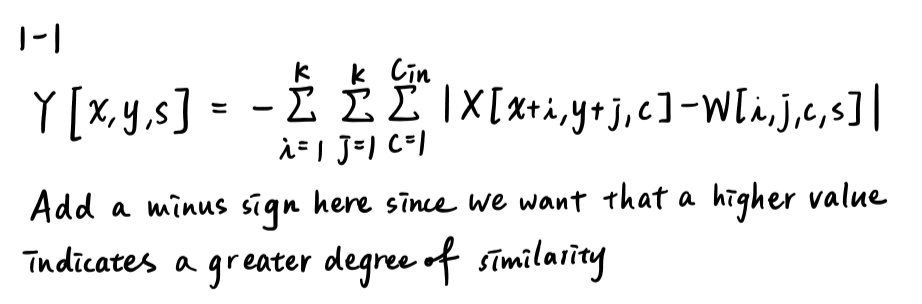 1-1
Y[x,y,s] = -∑_{i=1}^{k} ∑_{j=1}^{k} ∑_{c=1}^{Cin} |X[x+i,y+j,c]-W[i,j,c,s]|
Add a minus sign here since we want that a higher value
indicates a greater degree of similarity